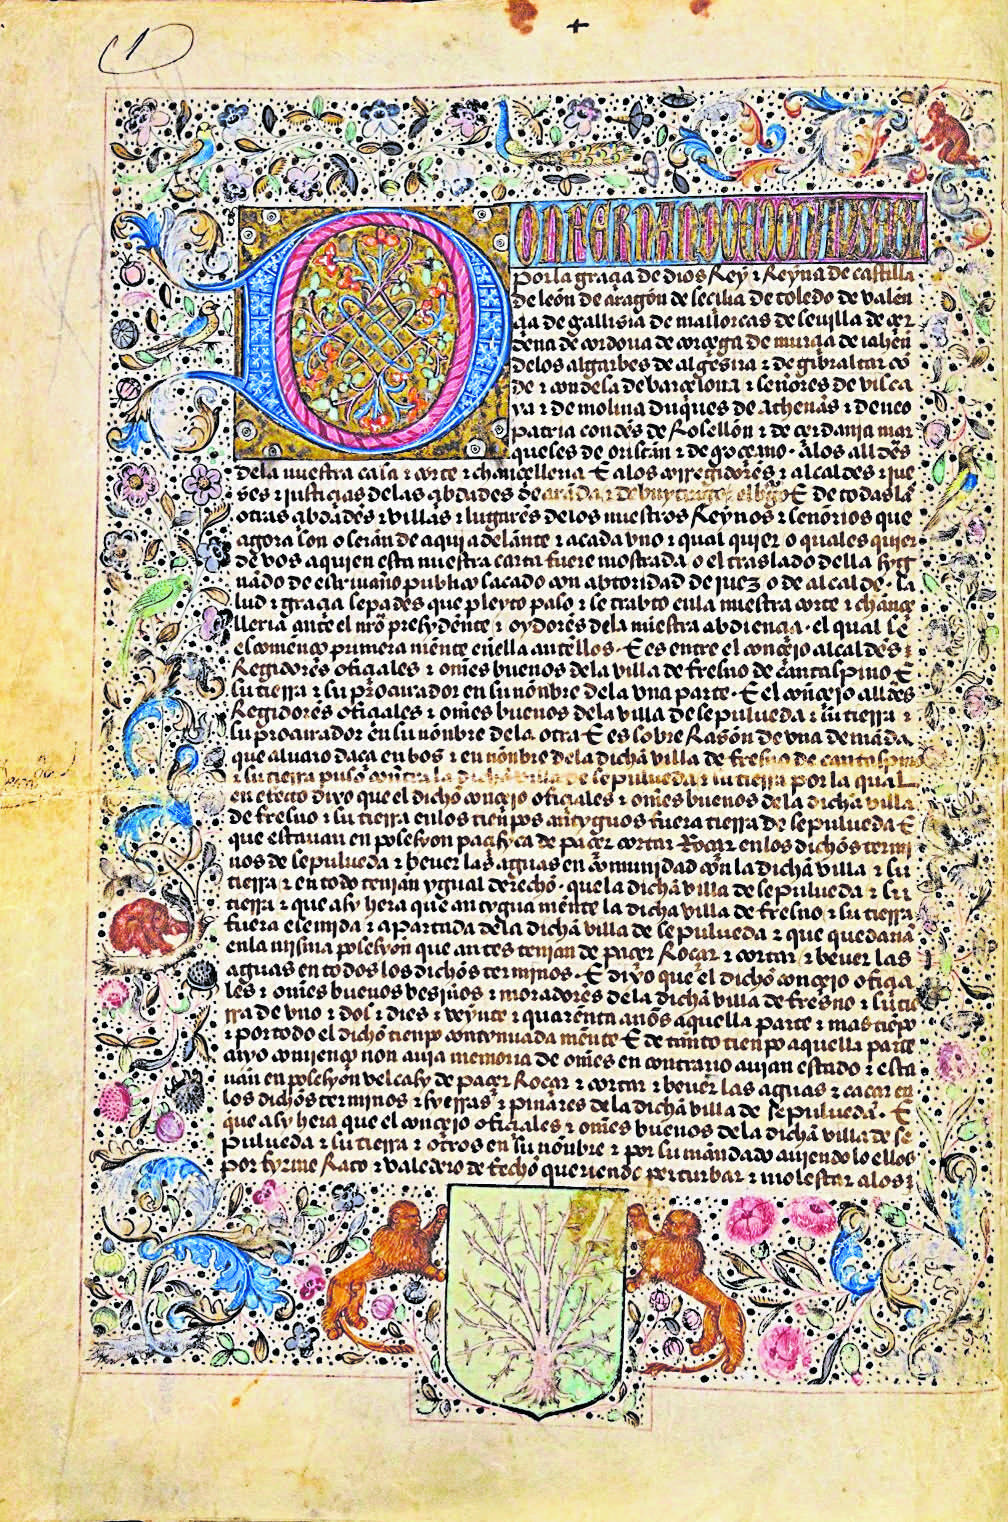 1
DON FERNANDO E DOÑA YSABEL
por la graçia de dios Rey ⁊ Reyna de castilla
de león de aragón de seçilia de toledo de valen
çia de gallisia de mallorcas de seuilla de çer
deña de cordoua de corçega de murçia de iahén
delos algarbes de algesira ⁊ de gibraltar con
de ⁊ condesa de barcelona ⁊ señores de visca
ya ⁊ de molina duques de athenas ⁊ de neo
patria condes de Rosellón ⁊ de çerdania mar
queses de oristán ⁊ de goçeano · alos alldes
dela nuestra casa ⁊ corte ⁊ chançelleria E alos corregidores ⁊ alcaldes ⁊ jue
ses ⁊ justiçias delas çibdades de aranda ⁊ de E de todas las
otras çibdades ⁊ villas ⁊ lugares delos nuestros Reynos ⁊ señorios que
agora son o serán de aqui adelante ⁊ acada vno ⁊ qual quier o quales quier
de vos aquien esta nuestra carta fuere mostrada o el traslado della syg
nado de escriuano publico sacado con abtoridad de juez o de alcalde · sa
lud ⁊ graçia sepades que pleyto paso ⁊ se trabto enla nuestra corte ⁊ chançe
lleria ante el nro presydente ⁊ oydores dela nuestra abdiençia · el qual se
començo primera miente enella antellos · E es entre el conçejo alcaldes ⁊
Regidores ofiçiales ⁊ omes buenos dela villa de fresno de cantaspino E
su tierra ⁊ su procurador en su nonbre dela vna parte · E el conçejo alldes
Regidores ofiçiales ⁊ omes buenos dela villa de sepulueda ⁊ su tierra ⁊
su procurador en su nonbre dela otra E es sobre Rasón de vna demanda
que aluaro daça en bos ⁊ en nonbre dela dicha villa de fresno de cantaspino
⁊ su tierra puso contra la dicha villa de sepulueda ⁊ su tierra por la qual
en efecto dixo que el dicho conçejo ofiçiales ⁊ omes buenos dela dicha villa
de fresno ⁊ su tierra enlos tienpos antyguos fuera tierra de sepulueda E
que estauan en posesyon paçifyca de paçer cortar Roçar enlos dichos termi
nos de sepulueda ⁊ beuer las aguas en comunidad con la dicha villa ⁊ su
tierra ⁊ en todo tenian ygual derecho · que la dicha villa de sepulueda ⁊ su
tierra ⁊ que asy hera que antygua mente la dicha villa de fresno ⁊ su tierra
fuera esemida ⁊ apartada dela dicha villa de sepulueda ⁊ que quedaria
enla misma posesyon que antes tenian de paçer Roçar ⁊ cortar ⁊ beuer las
aguas en todos los dichos terminos · E dixo que el dicho conçejo ofiçia
les ⁊ omes buenos vesinos ⁊ moradores dela dicha villa de fresno ⁊ su tie
rra de vno ⁊ dos ⁊ dies ⁊ veynte ⁊ quarenta años aquella parte ⁊ mas tiepo
⁊ por todo el dicho tienpo contynuada mente E de tanto tienpo aquella parte
cuyo comienço non auia memoria de omes en contrario auian estado ⁊ esta
uan en posesyon velcasy de paçer Roçar ⁊ cortar ⁊ beuer las aguas ⁊ caçar en
los dichos terminos ⁊ syerras ⁊ pinares dela dicha villa de sepulueda · E
que asy hera que el conçejo ofiçiales ⁊ omes buenos dela dicha villa de se
pulueda ⁊ su tierra ⁊ otros en su nonbre ⁊ por su mandado auiendo lo ellos
por fyrme Rato ⁊ valedero de fecho queriendo perturbar ⁊ molestar alos